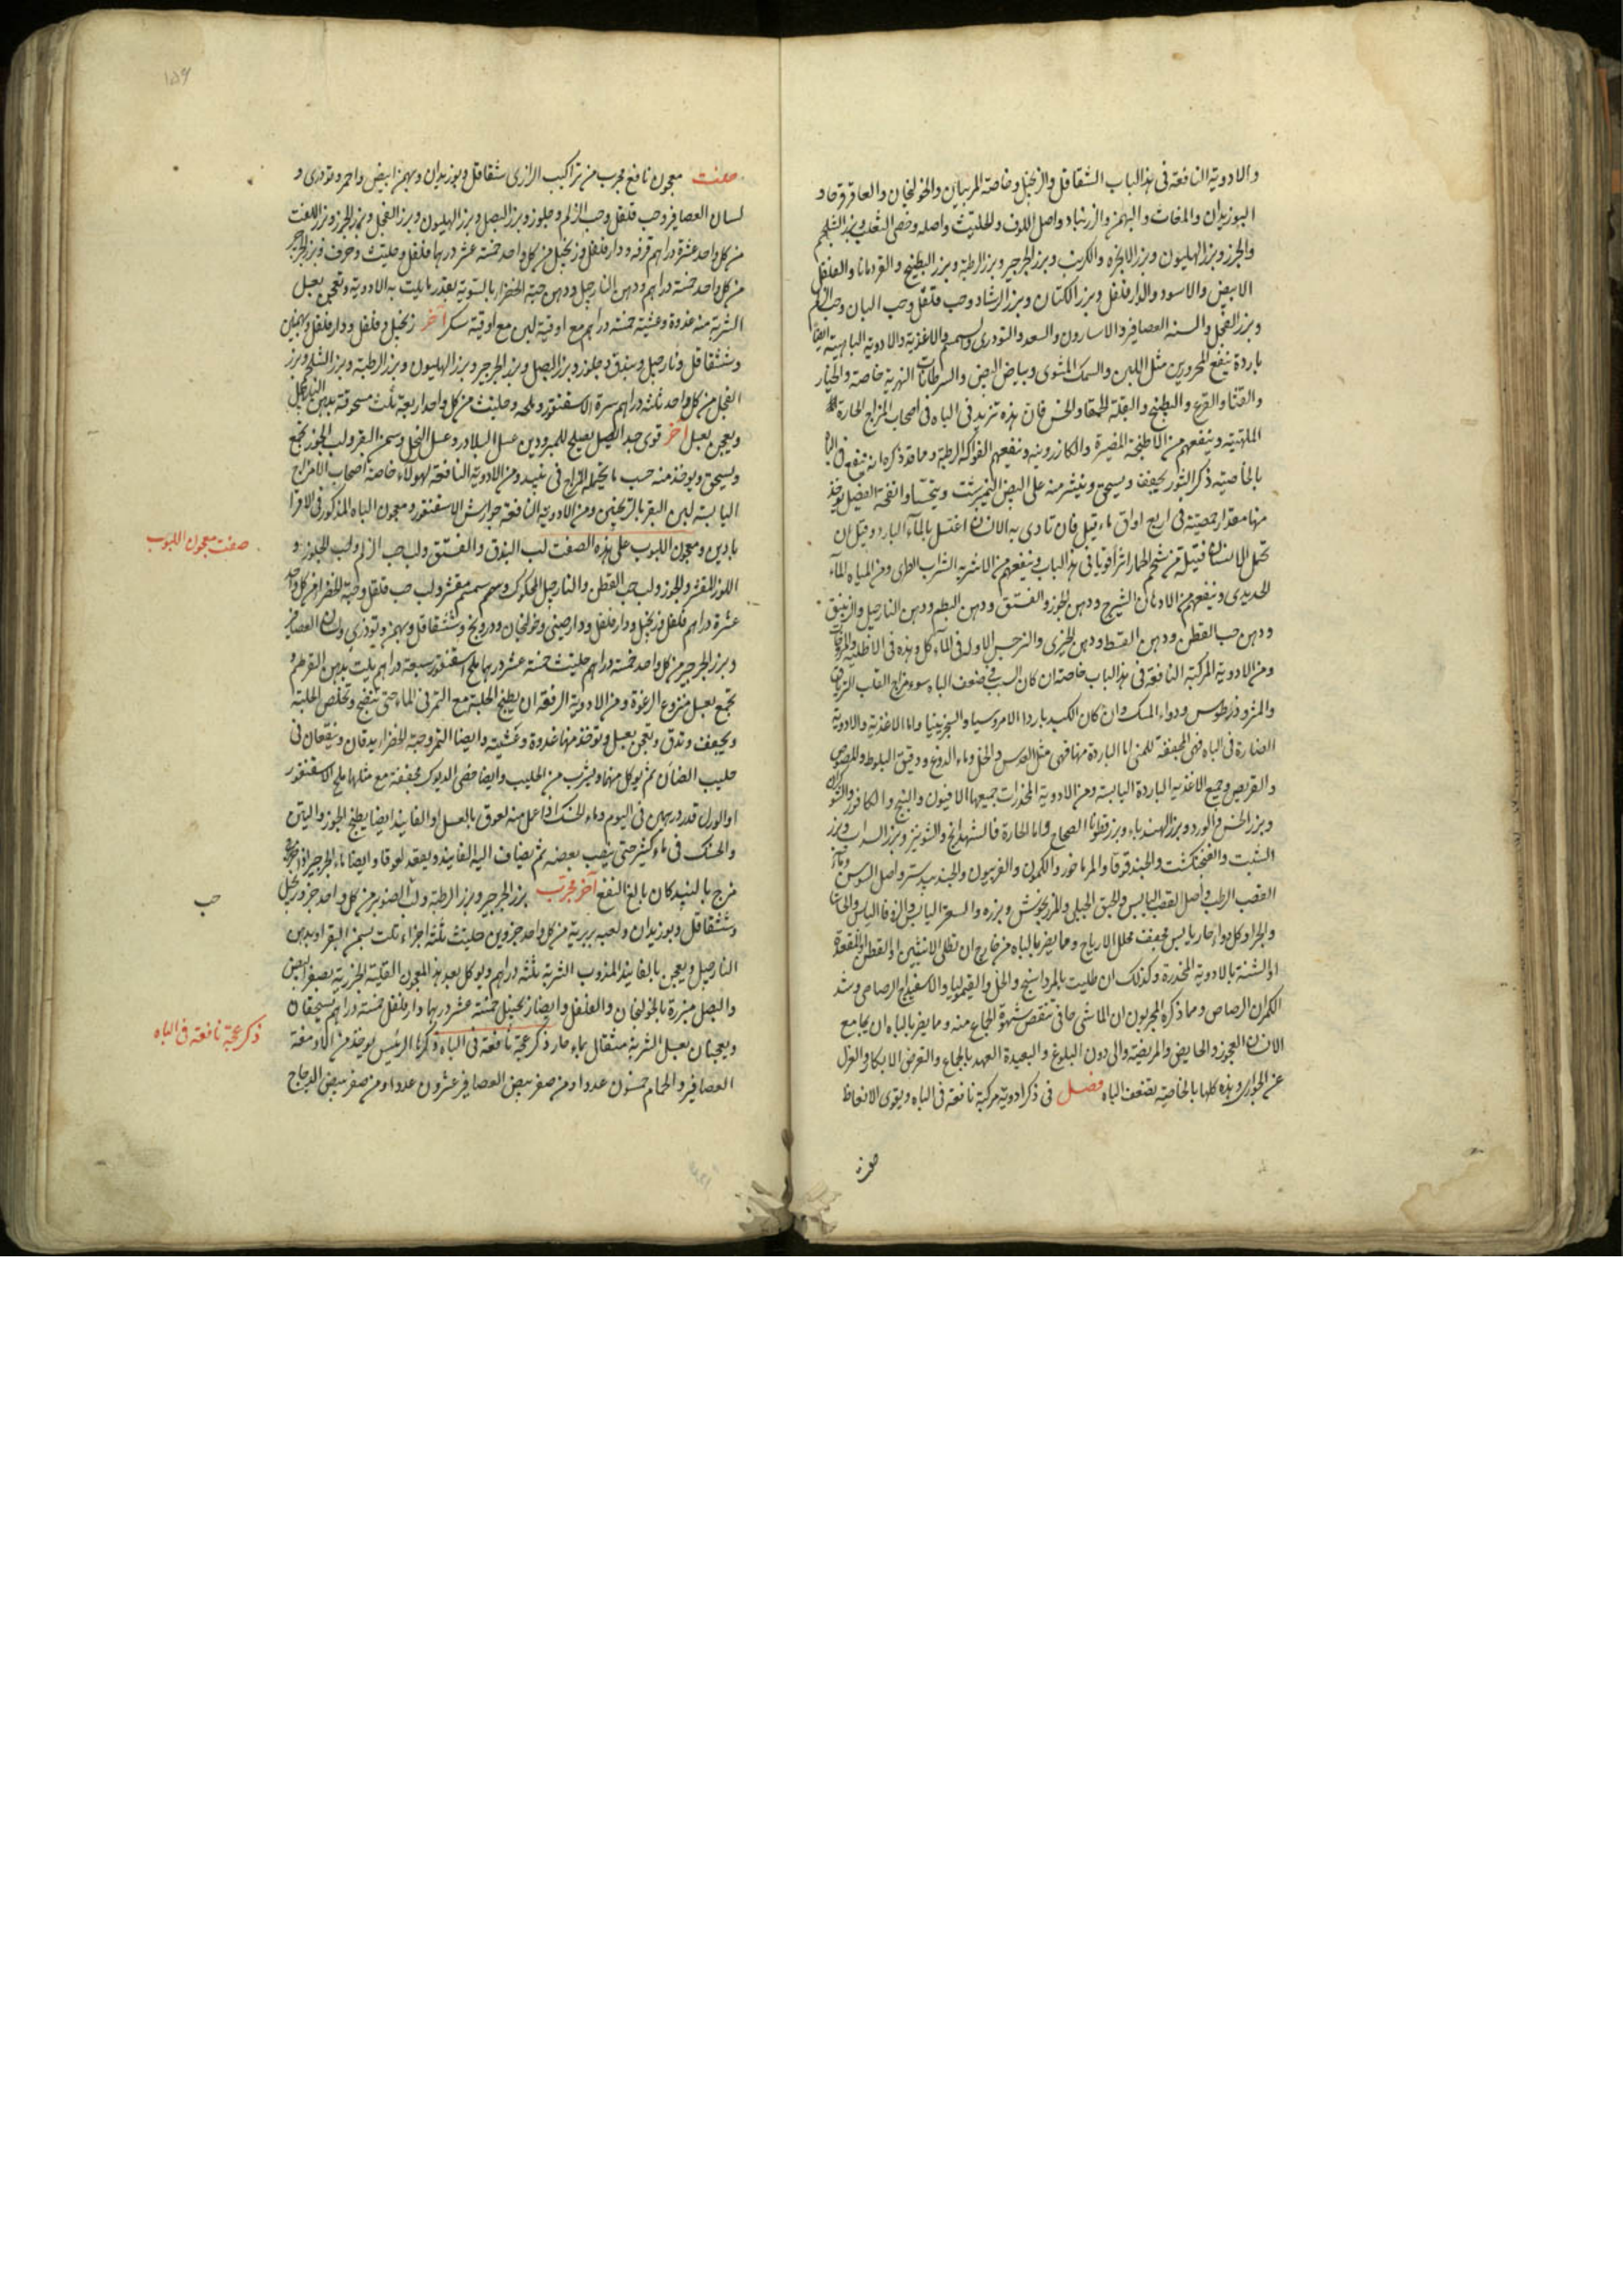 والادوية النافعة فى هذا الباب الشقاقل والزنجبيل وخاصة المربيين والخولنجان والعاقرقرحا و
البوزيدان والمغاث والبهمن والزرنباد واصل اللوف والحلتيت واصله وخصى الثعلب وبزر الشلجم
والجزر وبزر الهليون وبزر الانجره والكرنب وبزر الجرجير وبزر الرطبة وبزر البطيخ والقردمانا والفلفل
الابيض والاسود والدارفلفل وبزر الكتان وبزر الرشاد وحب فلفل وحب البان وحب الزلم
وبزر الفجل والسنة العصافير والاسارون والسعد والتودرى والسمسم والاغذية والادوية الباهية ايضا
باردة ينفع المحرورين مثل اللبن والسمك المشوى وبياض البيض والسرطانات النهرية خاصة والخيار
والقثا والقرع والبطيخ والبقلة الحمقا والخس فان هذه تزيد فى الباه فى اصحاب المزاج الحارة
الملتهبة وينفعهم من الاطبخة المضيرة والكازرونيه وينفعهم الفواكه الرطبة ومما قد ذكر انه ينفع فى الباه
بالخاصية ذكر الثور يجفف ويسحق وينثر منه على البيض النيمبرشت ويتحسا وانفحة الفصيل يوخذ
منها مقدار حمصة فى اربع اواق ماء قيل فان تاذى به الانسان اغتسل بالماء البارد وقيل ان
تحمل الانسان فتيلة من شحم الحمار اثر اقويا فى هذا الباب وينفعهم من الاشربه الشراب الطرى ومن المياه الماء
الحديدى وينفعهم من الادهان الشيرج ودهن الجوز والفستق ودهن البطم ودهن النارجيل والزنبق
ودهن حب القطن ودهن القسط ودهن الخيرى والنرجس الاوله فى المآكل وهذه فى الاطلية والمروخات
ومن الادوية المركبة النافعة فى هذا الباب خاصة ان كان السبب فى ضعف الباه سوء مزاج القلب الترياق
والمثروذيطوس ودواء المسك وان كان الكبد باردا الامروسيا والسجزينيا واما الاغذية والادوية
الضارة فى الباه فهى المجففة للمنى اما الباردة منها فهى مثل العدس والخل وماء الدوغ ودقيق البلوط والمصوص
والقريص وجميع الاغذيه الباردة اليابسة ومن الادوية المخدرات جميعها الافيون والبنج والكافور والشوكران
وبزر الخس والورد وبزر الهندباء وبزر قطونا الصحاح واما الحارة فالشهدانج والشونيز وبزر السداب وبزر
الشبت والفنجنكشت والحندقوقا والمرماخور والكمون والفربيون والجندبيدستر واصل السوس
القصب الرطب واصل القصب اليابس والحبق الجبلى والمرزنجوش وبزره والسعتر اليابس والزوفا اليابس
وكل دواء حار يابس مجفف محلل الارياح ومما يضر بالباه من خارج ان تطلى الانثيين او القطن والمقعدة
او الشنة بالادوية المخدرة وكذلك ان طليت بالمرداسنج والخل والقيموليا والاسفيداج الرصاصى وشد
الكمر ان الرصاص ومما ذكره المجربون ان الماشى حافى تنقص شهوة الجماع منه ومما يضر بالباه ان يجامع
الانسان العجوز والحايض والمريضة والى دون البلوغ والبعيدة العهد بالجماع والتعرض للابكار والعزل
عن الجوارى وهذه كلها بالخاصية يضعف الباه فصل فى ذكر ادوية مركبة نافعة فى الباه ويقوى الانعاظ
صفت
صفت معجون نافع مجرب من تراكيب الرازى شقاقل وبوزيدان وبهمن ابيض واحمر وتودرى و
لسان العصافير وحب فلفل وحب الزلم وجلوز وبزر البصل وبزر الهليون وبزر الفجل وبزر الجزر وبزر اللفت
من كل واحد عشرة دراهم قرفه ودارفلفل وزنجبيل من كل واحد خمسة عشر درهما فلفل وحلتيت وحرف وبزر الجرجير
من كل واحد خمسة دراهم ودهن النارجيل ودهن حبة الخضرا بالسوية بقدر ما يلت به الادوية وتعجن بعسل
الشربة منه غدوة وعشية خمسة دراهم مع اوقية لبن مع اوقية سكر آخر زنجبيل وفلفل ودارفلفل وبهمنين
وشقاقل ونارجيل وبندق وجلوز وبزر البصل وبزر الجرجير وبزر الهليون وبزر الرطبة وبزر الشلجم وبزر
الفجل من كل واحد ثلثه دراهم سرة الاسقنقور وملحه وحلتيت من كل واحد اربعة يلت مسحوقة بدهن النارجيل
ويعجن بعسل آخر قوى جدا يصلح للمبرودين عسل البلادر وعسل النحل وسمن البقر ولب الجوز يجمع
ويسحق ويوخذ منه حسب ما يحتمله المزاج فى نبيذ ومن الادوية النافعة لهولاء خاصة اصحاب الامزاج
اليابسة لبن البقر بالترنجبين ومن الادوية النافعة جوارش الاسقنقور ومعجون الباه المذكور فى الاقرا
بادين ومعجون اللبوب على هذه الصفت لب البندق والفستق ولب حب الزلم ولب الجلوز و
اللوز المقشر والجوز ولب حب القطن والنارجيل المحكوك وسمسم مقشر ولب حب فلفل وحبة الخضرا من كل واحد
عشرة دراهم فلفل وزنجبيل ودارفلفل ودارصينى وخولنجان ودرونج وشقاقل وبهمن وتوذرى ولسان العصافير
وبزر الجرجير من كل واحد خمسة دراهم حلتيت خمسة عشر درهما ملح اسقنقور سبعة دراهم يلت بدهن القرطم و
يجمع بعسل منزوع الرغوة ومن الادوية الرفعة ان يطبخ الحلبة مع التمر فى الماء حتى تنضج وتخلص الحلبة
ويجفف وتدق وتعجن بعسل ويوخذ منها غدوة وعشية وايضا التمر وحبة الخضرا يدقان وينقعان فى
حليب الضان ثم يوكل منهما ويشرب من الحليب وايضا خصى الديوك مجففة مع مثلها ملح الاسقنقور
او الورل قدر درهمين فى اليوم وماء الحسك اذا عمل منه لعوق بالعسل او الفانيذ ايضا يطبخ الجوز والتين
والحسك فى ماء كثير حتى يذهب بعضه ثم يضاف اليه الفانيذ ويعقد لعوقا وايضا ماء الجرجير اذا
مزج بالنبيذ كان بالغ النفع آخر مجرب بزر الجرجير وبزر الرطبة ولب الصنوبر من كل واحد جزو زنجبيل
وشقاقل وبوزيدان ولعبه بربرية من كل واحد جزوين حلتيت ثلثه اجزاء تلت بسمن البقر او بدهن
النارجيل ويعجن بالفانيذ المذوب الشربة ثلثه دراهم ويوكل بعد هذا المعجون القلية الجزرية بصفر البيض
والبصل مبزرة بالخولنجان والفلفل وايضا زنجبيل خمسة عشر درهما دارفلفل خمسة دراهم يسحقان
ويعجنان بعسل الشربة مثقال بماء حار ذكر عجة نافعة فى الباه ذكرها الرئيس يوخذ من ادمغة
العصافير والحمام خمسون عددا ومن صفر بيض العصافير عشرون عددا ومن صفر بيض الدجاج
صفت معجون اللبوب
حب
ذكر عجة نافعة فى الباه